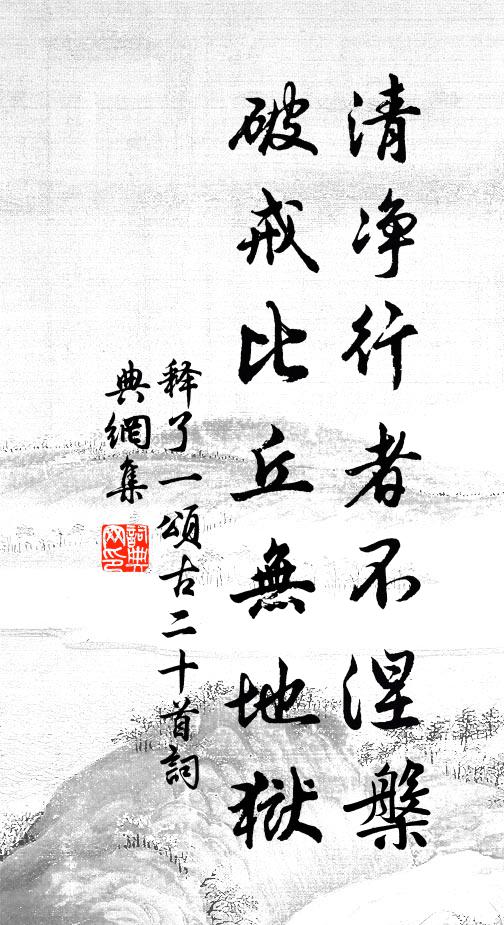 清净行者不涅槃
破戒比丘無地獄
释了一頌古二十首詞
典網集
詞典
网印